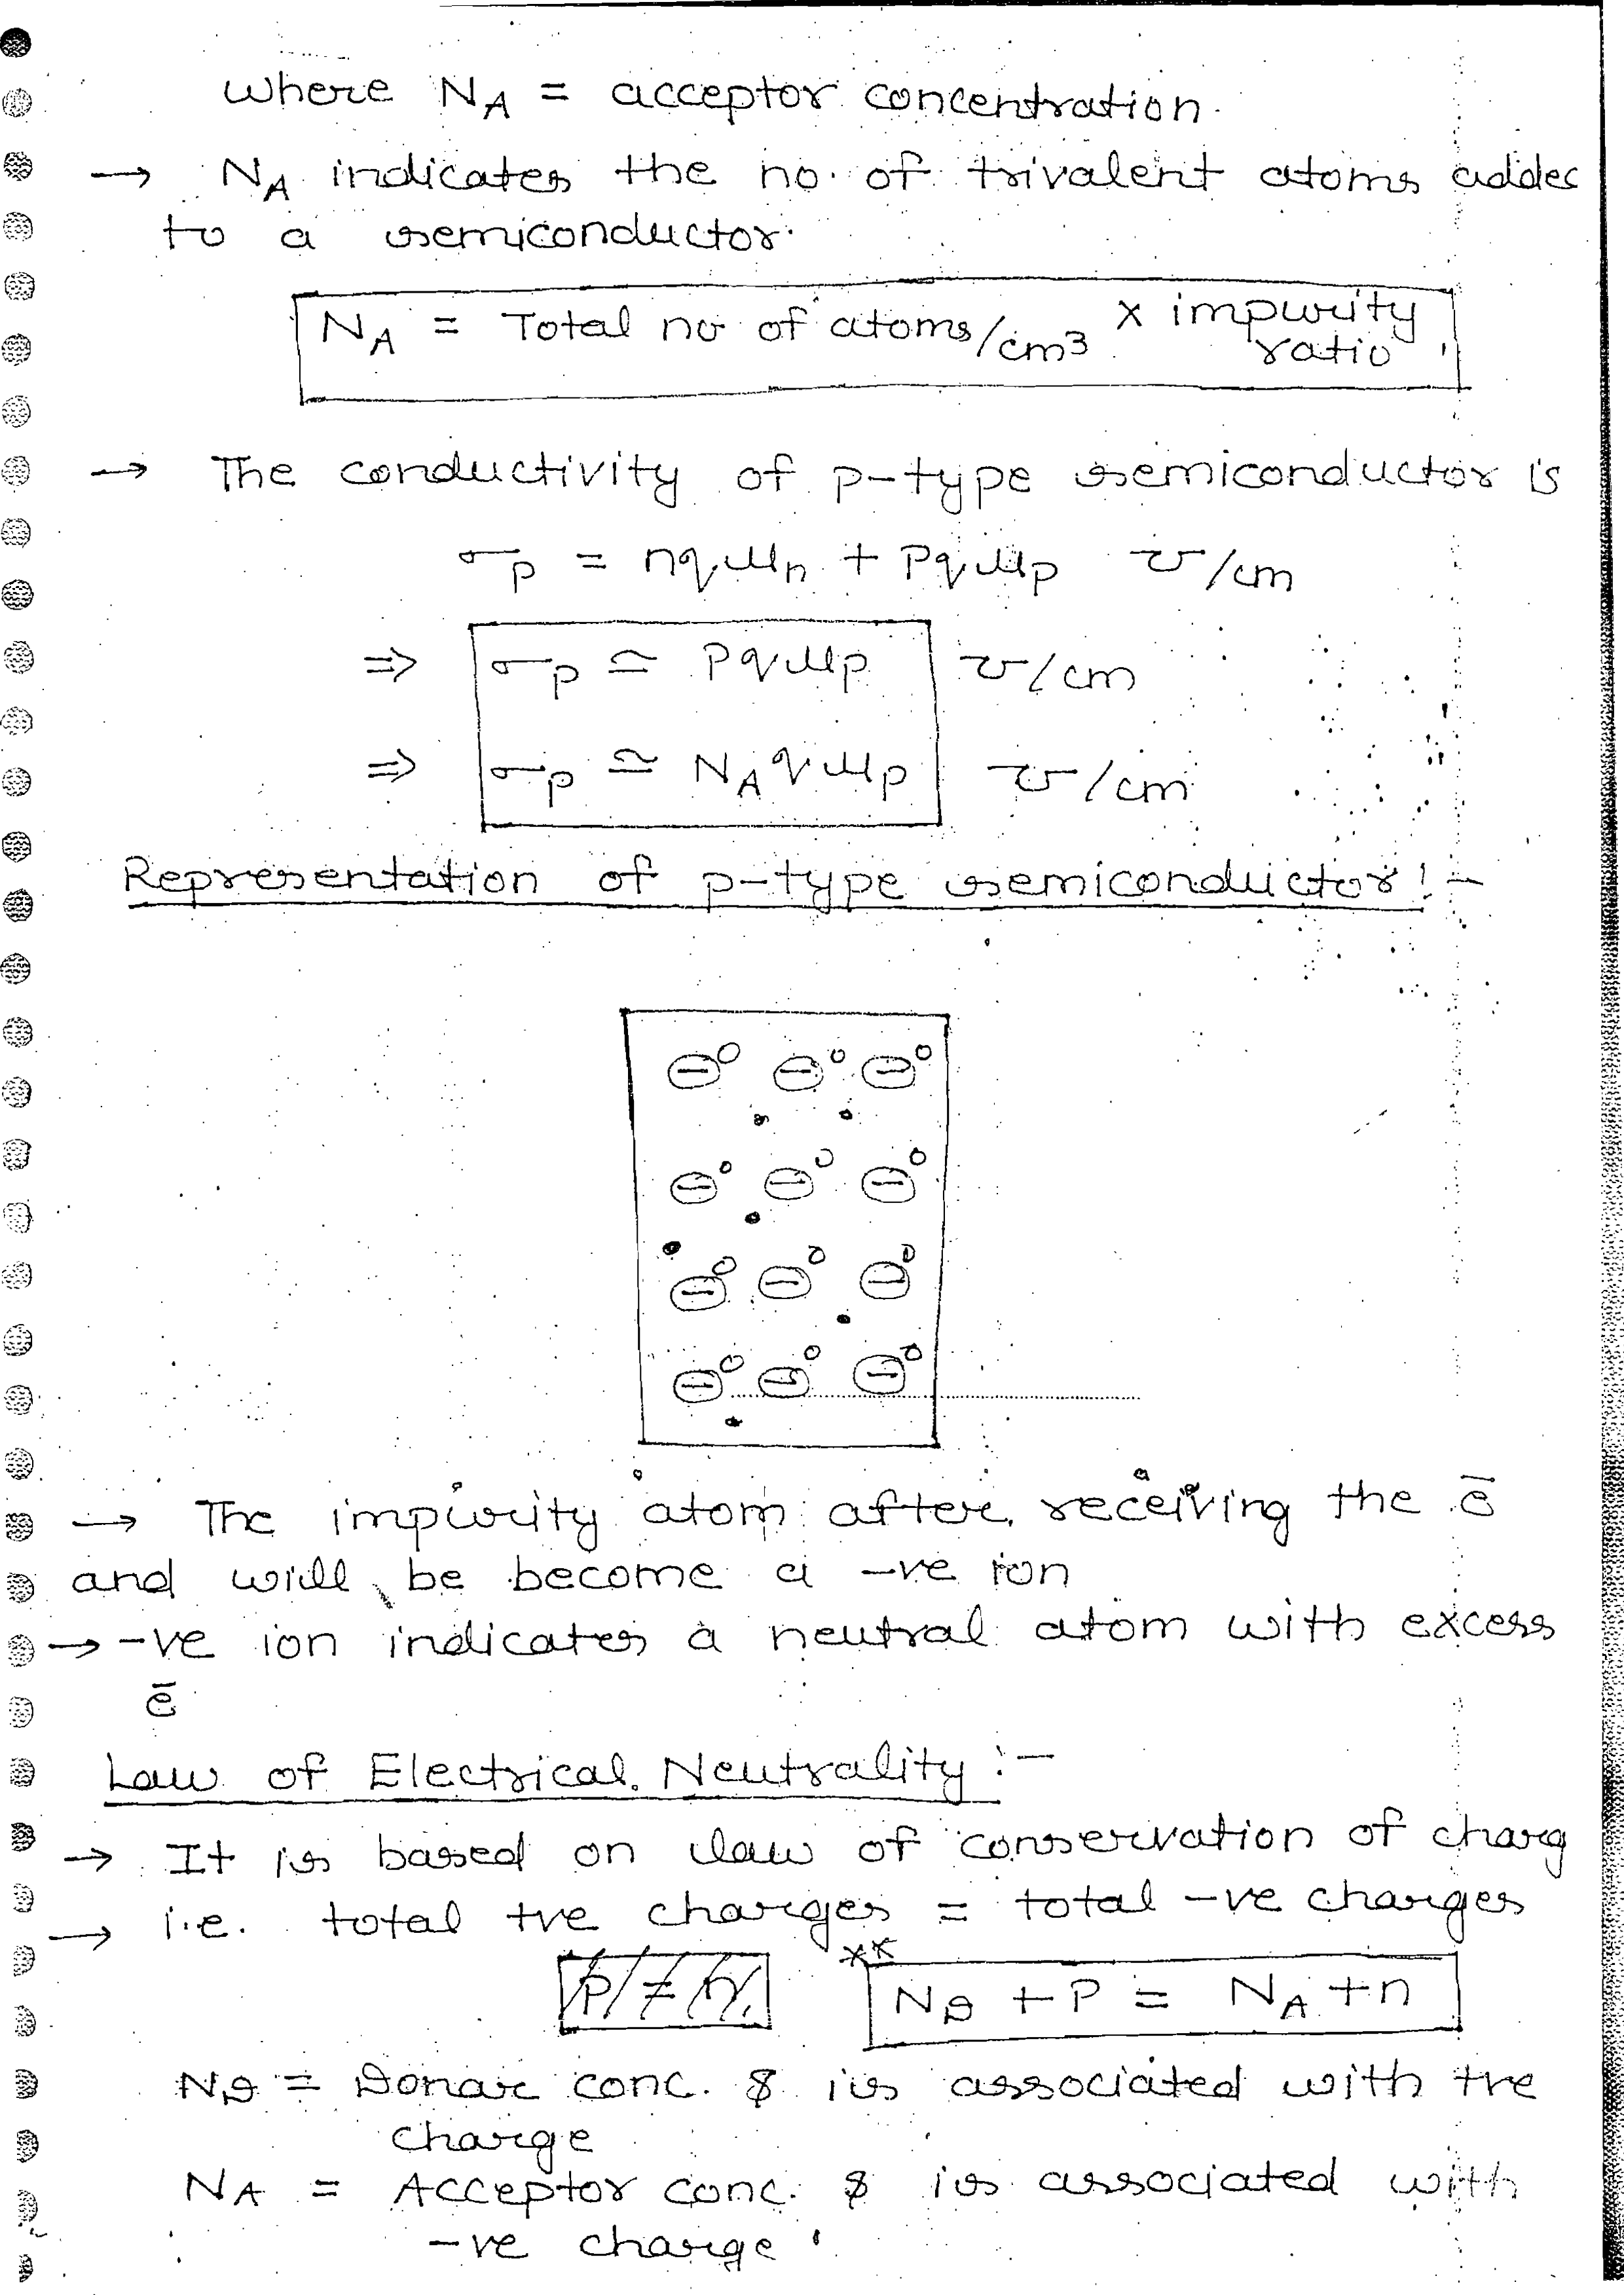 where N_A = acceptor concentration.
→ N_A indicates the no. of trivalent atoms addes
to a semiconductor.
N_A = Total no of atoms/cm3 × impurity
ratio
→ The conductivity of p-type semiconductor is
σ_p = nqμ_n + pqμ_p ℧/cm
⇒ σ_p ≃ pqμ_p ℧/cm
⇒ σ_p ≃ N_A qμ_p ℧/cm
Representation of p-type semiconductor:-
→ The impurity atom after receiving the ē
and will be become a -ve ion
→ -ve ion indicates a neutral atom with excess
ē
Law of Electrical Neutrality:-
→ It is based on law of conservation of charg
→ i.e. total +ve charges = total -ve charges
**
N_D + P = N_A + n
N_D = Donar conc. & is associated with +ve
charge
N_A = Acceptor conc. & is associated with
-ve charge.